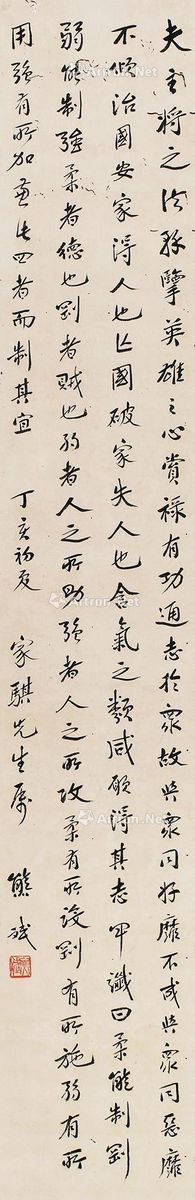 夫主将之法務擥英雄之心賞禄有功通志於眾故與眾同好靡不成與眾同惡靡
不傾治國安家得人也亡國破家失人也含氣之類咸願得其志軍讖曰柔能制剛
弱能制强柔者德也剛者賊也弱者人之所助强者人之所攻柔有所設剛有所施弱有所
用强有所加兼此四者而制其宜 丁亥初夏 家騏先生屬 熊斌
Artron.net